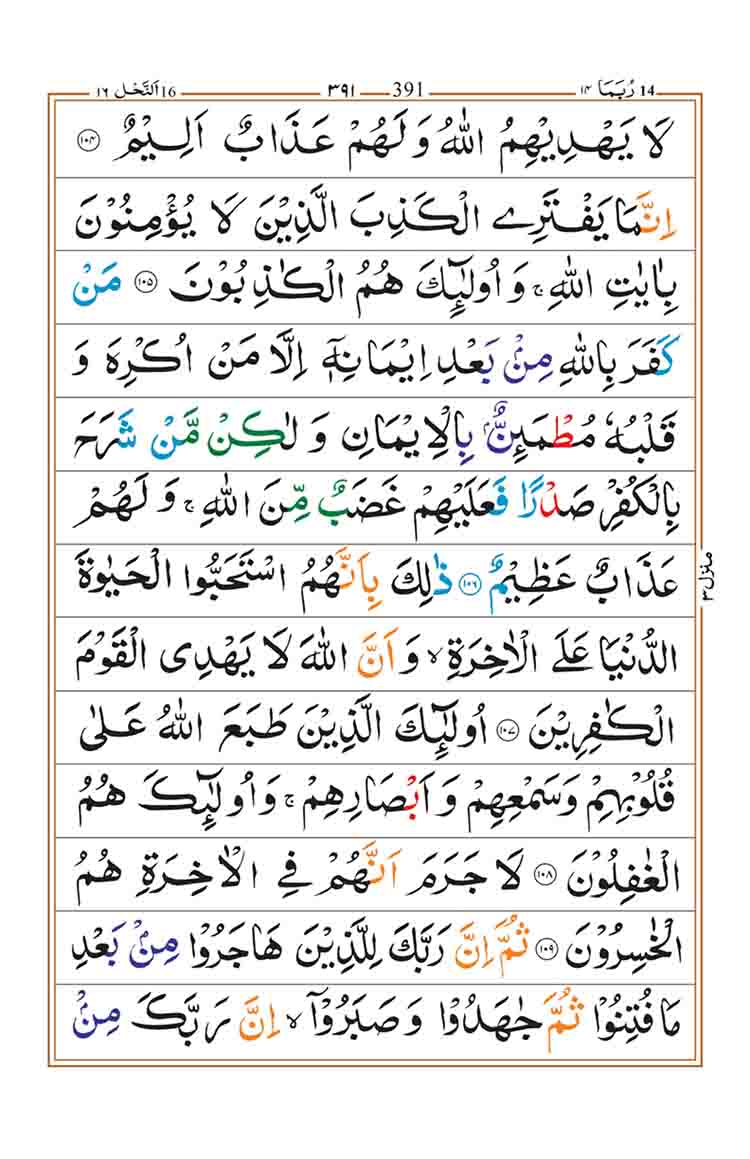 14 رُبَمَا ۱۴ 391 ۳۹۱ 16 اَلنَّحْل ۱۶
لَا يَهْدِيْهِمُ اللّٰهُ وَ لَهُمْ عَذَابٌ اَلِيْمٌ ۝۱۰۴
اِنَّمَا يَفْتَرِے الْكَذِبَ الَّذِيْنَ لَا يُؤْمِنُوْنَ
بِاٰيٰتِ اللّٰهِ ۚ وَ اُولٰٓئِكَ هُمُ الْكٰذِبُوْنَ ۝۱۰۵ مَنْ
كَفَرَ بِاللّٰهِ مِنْۢ بَعْدِ اِيْمَانِهٖۤ اِلَّا مَنْ اُكْرِهَ وَ
قَلْبُهٗ مُطْمَئِنٌّۢ بِالْاِيْمَانِ وَ لٰكِنْ مَّنْ شَرَحَ
بِالْكُفْرِ صَدْرًا فَعَلَيْهِمْ غَضَبٌ مِّنَ اللّٰهِ ۚ وَ لَهُمْ
عَذَابٌ عَظِيْمٌ ۝۱۰۶ ذٰلِكَ بِاَنَّهُمُ اسْتَحَبُّوا الْحَيٰوةَ
الدُّنْيَا عَلَے الْاٰخِرَةِ ۙ وَ اَنَّ اللّٰهَ لَا يَهْدِى الْقَوْمَ
الْكٰفِرِيْنَ ۝۱۰۷ اُولٰٓئِكَ الَّذِيْنَ طَبَعَ اللّٰهُ عَلٰى
قُلُوْبِهِمْ وَ سَمْعِهِمْ وَ اَبْصَارِهِمْ ۚ وَ اُولٰٓئِكَ هُمُ
الْغٰفِلُوْنَ ۝۱۰۸ لَا جَرَمَ اَنَّهُمْ فِے الْاٰخِرَةِ هُمُ
الْخٰسِرُوْنَ ۝۱۰۹ ثُمَّ اِنَّ رَبَّكَ لِلَّذِيْنَ هَاجَرُوْا مِنْۢ بَعْدِ
مَا فُتِنُوْا ثُمَّ جٰهَدُوْا وَ صَبَرُوْۤا ۙ اِنَّ رَبَّكَ مِنْۢ
منزل ۳